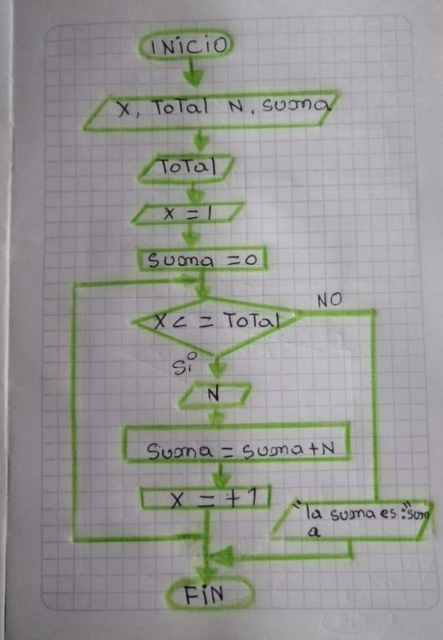 INICIO
X, TOTAL N, SUMA
TOTAL
X = 1
SUMA = 0
X < = TOTAL
NO
SI
N
SUMA = SUMA + N
X = + 1
"la suma es:" sum
a
FIN